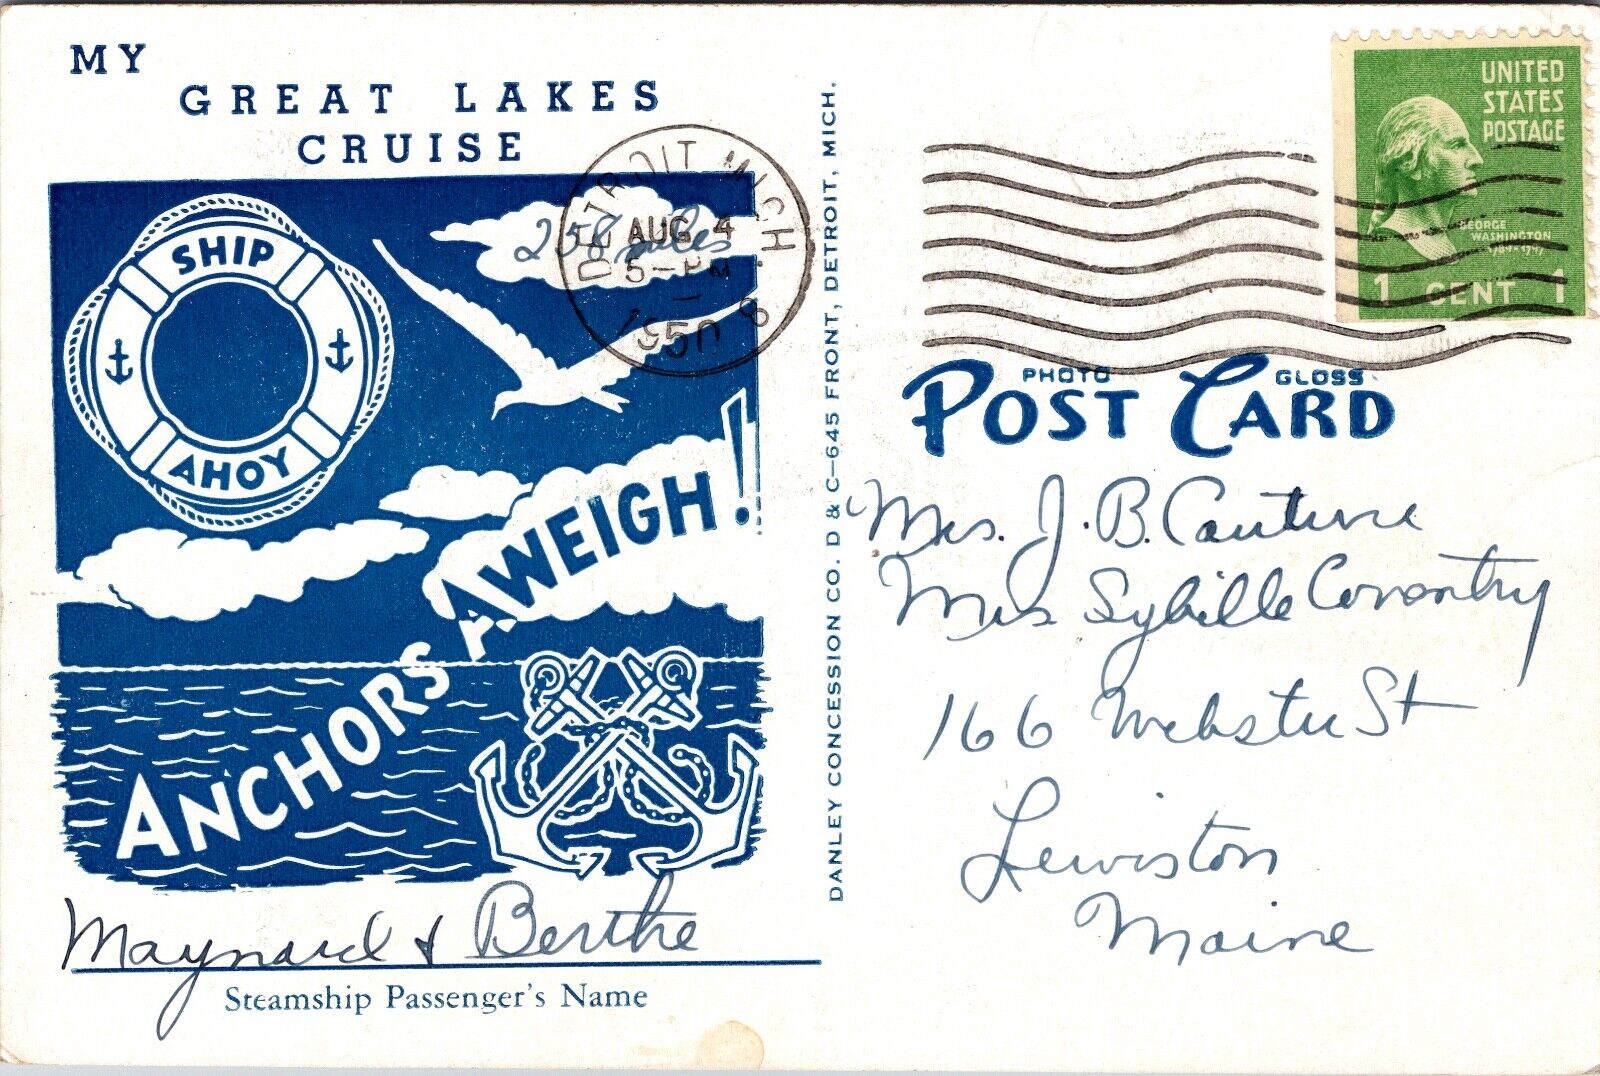 MY
GREAT LAKES
CRUISE
SHIP
AHOY
258 miles
ANCHORS AWEIGH!!
Maynard & Berthe
Steamship Passenger's Name
DANLEY CONCESSION CO. D & C—645 FRONT, DETROIT, MICH.
DETROIT MICH. 8
AUG 4
5-PM
1950
UNITED
STATES
POSTAGE
GEORGE
WASHINGTON
1 CENT 1
PHOTO GLOSS
POST CARD
Mrs. J. B. Couture
Mrs Sybille Coventry
166 Webster St
Lewiston
Maine